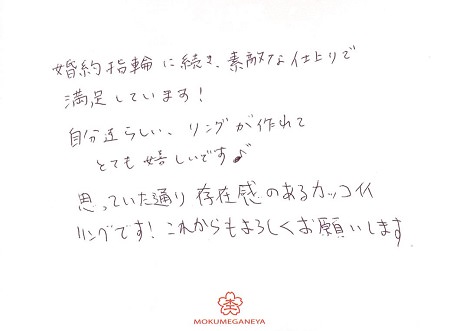 婚約指輪に続き、素敵な仕上りで
満足しています!
自分達らしい、リングが作れて
とても嬉しいです♪
思っていた通り存在感のあるカッコイイ
リングです! これからもよろしくお願いします
MOKUMEGANEYA